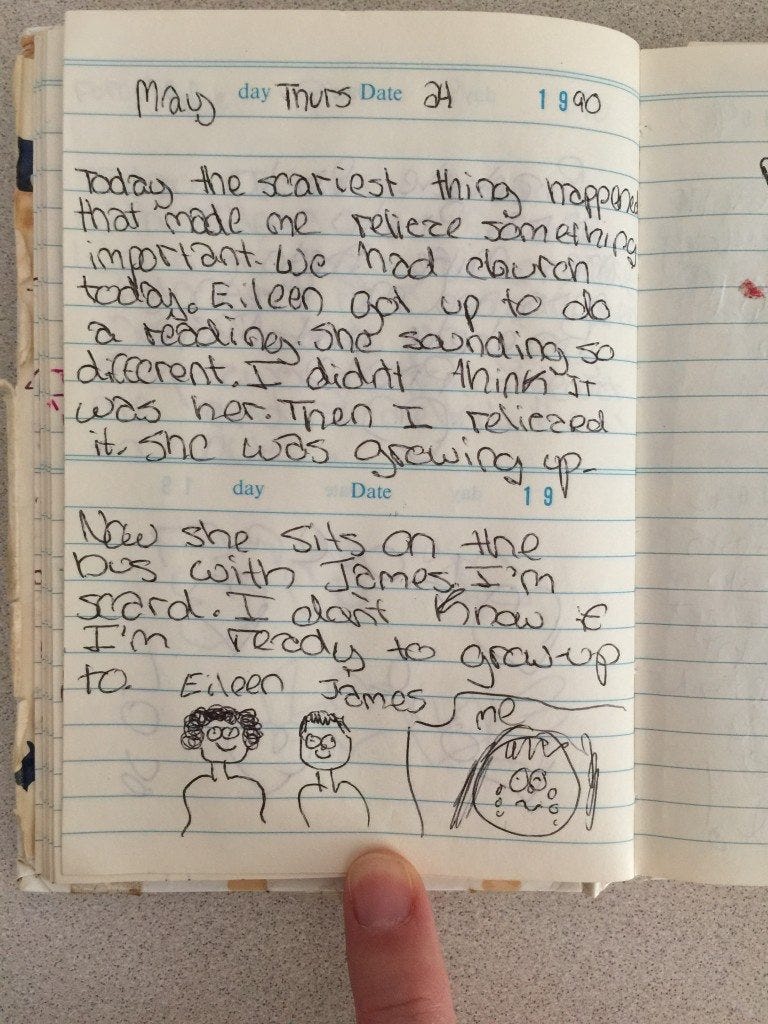 May day Thurs Date 24 1990
Today the scariest thing happened
that made me relieze something
important. We had church
today. Eileen got up to do
a reading. She sounding so
different. I didn't think it
was her. Then I reliezed
it. She was growing up.
day Date 19
Now she sits on the
bus with James. I'm
scard. I don't know if
I'm ready to grow-up
to. Eileen James
me